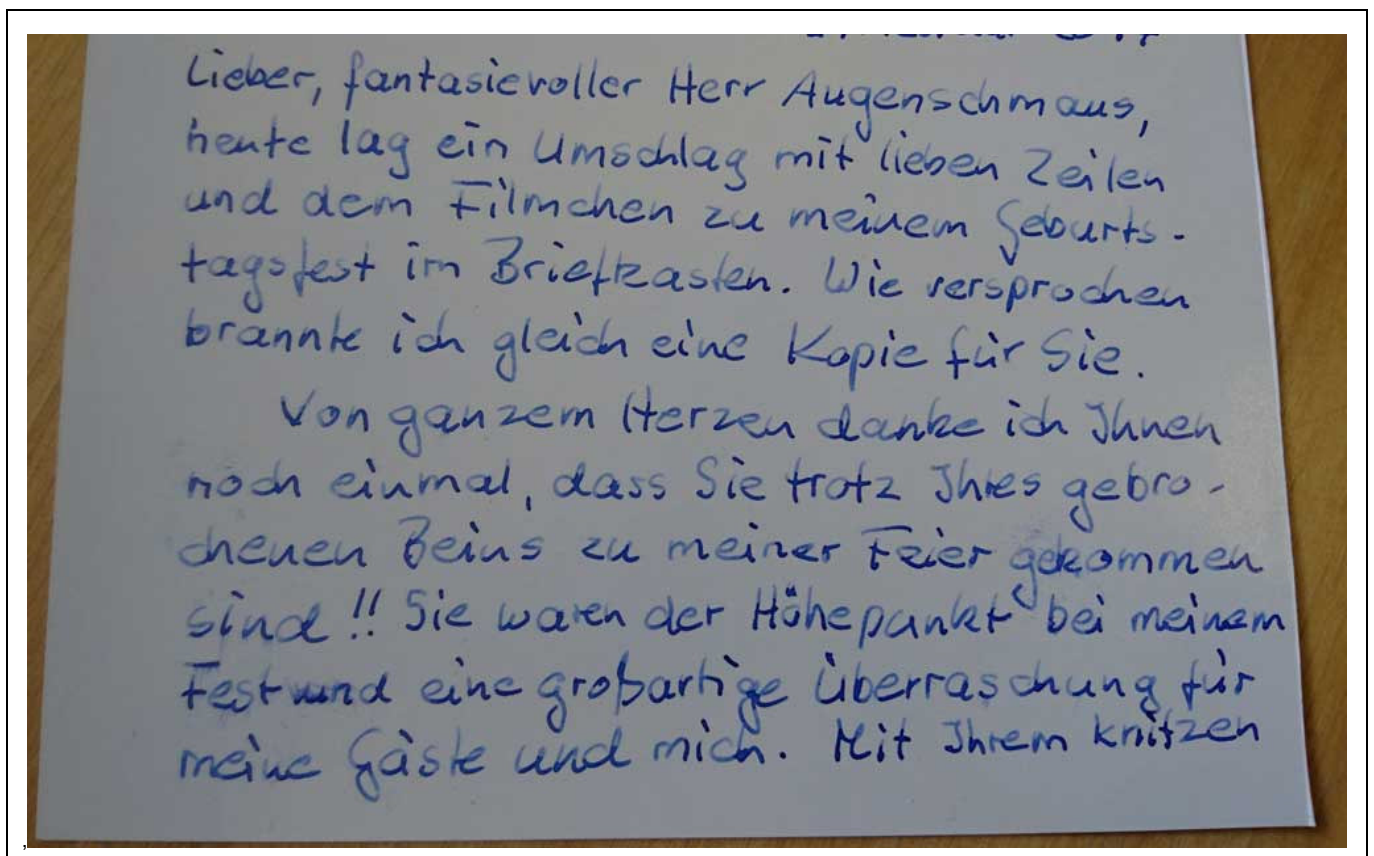 Lieber, fantasievoller Herr Augenschmaus,
heute lag ein Umschlag mit lieben Zeilen
und dem Filmchen zu meinem Geburts-
tagsfest im Briefkasten. Wie versprochen
brannte ich gleich eine Kopie für Sie.
Von ganzem Herzen danke ich Ihnen
noch einmal, dass Sie trotz Ihres gebro-
chenen Beins zu meiner Feier gekommen
sind!! Sie waren der Höhepunkt bei meinem
Fest und eine großartige Überraschung für
meine Gäste und mich. Mit Ihrem knitzen